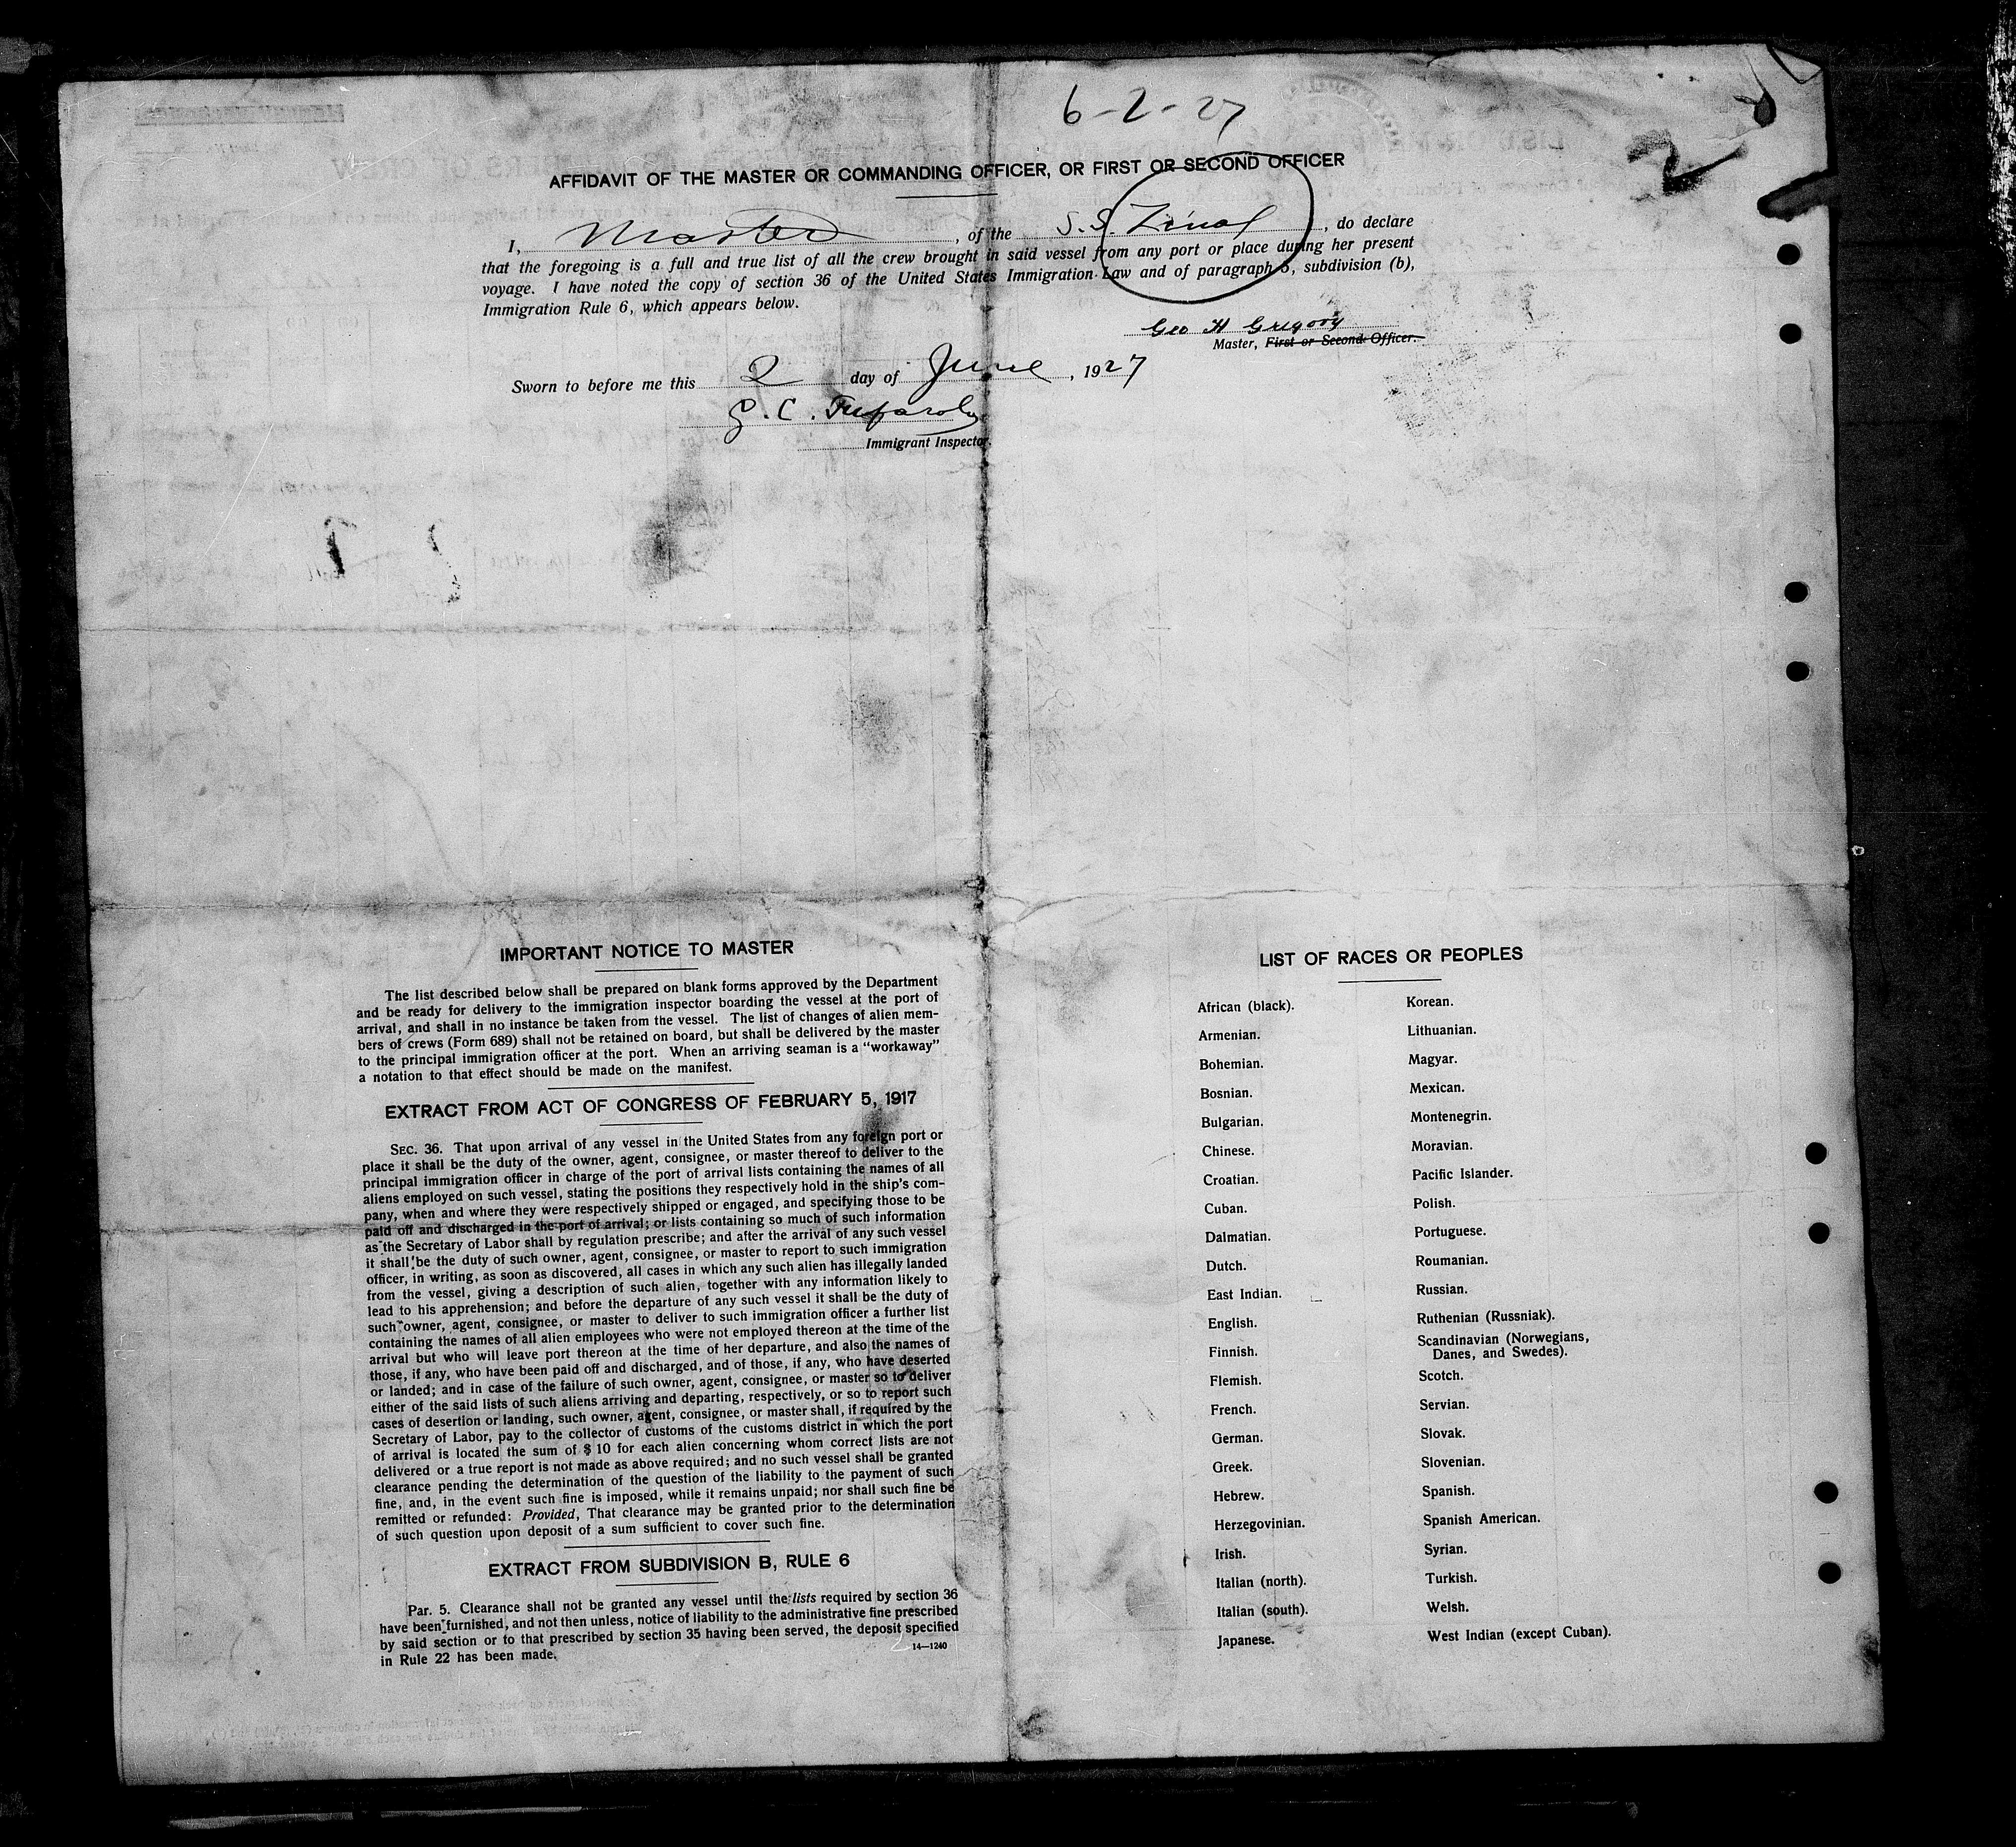 6-2-27
2
AFFIDAVIT OF THE MASTER OR COMMANDING OFFICER, OR FIRST OR SECOND OFFICER
I, Master, of the S.S. Zinal, do declare
that the foregoing is a full and true list of all the crew brought in said vessel from any port or place during her present
voyage. I have noted the copy of section 36 of the United States Immigration Law and of paragraph 5, subdivision (b),
Immigration Rule 6, which appears below.
Geo H Gregory
Master, First or Second Officer.
Sworn to before me this 2 day of June, 1927
Immigrant Inspector.
IMPORTANT NOTICE TO MASTER
The list described below shall be prepared on blank forms approved by the Department
and be ready for delivery to the immigration inspector boarding the vessel at the port of
arrival, and shall in no instance be taken from the vessel. The list of changes of alien mem-
bers of crews (Form 689) shall not be retained on board, but shall be delivered by the master
to the principal immigration officer at the port. When an arriving seaman is a "workaway"
a notation to that effect should be made on the manifest.
EXTRACT FROM ACT OF CONGRESS OF FEBRUARY 5, 1917
SEC. 36. That upon arrival of any vessel in the United States from any foreign port or
place it shall be the duty of the owner, agent, consignee, or master thereof to deliver to the
principal immigration officer in charge of the port of arrival lists containing the names of all
aliens employed on such vessel, stating the positions they respectively hold in the ship's com-
pany, when and where they were respectively shipped or engaged, and specifying those to be
paid off and discharged in the port of arrival; or lists containing so much of such information
as the Secretary of Labor shall by regulation prescribe; and after the arrival of any such vessel
it shall be the duty of such owner, agent, consignee, or master to report to such immigration
officer, in writing, as soon as discovered, all cases in which any such alien has illegally landed
from the vessel, giving a description of such alien, together with any information likely to
lead to his apprehension; and before the departure of any such vessel it shall be the duty of
such owner, agent, consignee, or master to deliver to such immigration officer a further list
containing the names of all alien employees who were not employed thereon at the time of the
arrival but who will leave port thereon at the time of her departure, and also the names of
those, if any, who have been paid off and discharged, and of those, if any, who have deserted
or landed; and in case of the failure of such owner, agent, consignee, or master so to deliver
either of the said lists of such aliens arriving and departing, respectively, or so to report such
cases of desertion or landing, such owner, agent, consignee, or master shall, if required by the
Secretary of Labor, pay to the collector of customs of the customs district in which the port
of arrival is located the sum of $10 for each alien concerning whom correct lists are not
delivered or a true report is not made as above required; and no such vessel shall be granted
clearance pending the determination of the question of the liability to the payment of such
fine, and, in the event such fine is imposed, while it remains unpaid; nor shall such fine be
remitted or refunded: Provided, That clearance may be granted prior to the determination
of such question upon deposit of a sum sufficient to cover such fine.
EXTRACT FROM SUBDIVISION B, RULE 6
Par. 5. Clearance shall not be granted any vessel until the lists required by section 36
have been furnished, and not then unless, notice of liability to the administrative fine prescribed
by said section or to that prescribed by section 35 having been served, the deposit specified
in Rule 22 has been made.
14—1240
LIST OF RACES OR PEOPLES
African (black).
Armenian.
Bohemian.
Bosnian.
Bulgarian.
Chinese.
Croatian.
Cuban.
Dalmatian.
Dutch.
East Indian.
English.
Finnish.
Flemish.
French.
German.
Greek.
Hebrew.
Herzegovinian.
Irish.
Italian (north).
Italian (south).
Japanese.
Korean.
Lithuanian.
Magyar.
Mexican.
Montenegrin.
Moravian.
Pacific Islander.
Polish.
Portuguese.
Roumanian.
Russian.
Ruthenian (Russniak).
Scandinavian (Norwegians,
Danes, and Swedes).
Scotch.
Servian.
Slovak.
Slovenian.
Spanish.
Spanish American.
Syrian.
Turkish.
Welsh.
West Indian (except Cuban).